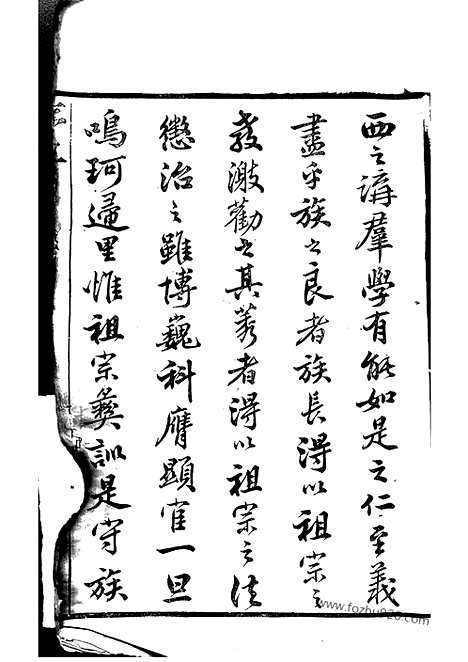 西之講羣學有能如是之仁至義
盡乎族之良者族長得以祖宗之
教激勸之其莠者得以祖宗之法
懲治之雖博巍科膺顯宦一旦
鳴珂歸里惟祖宗彝訓是守族
www.fozhu920.com